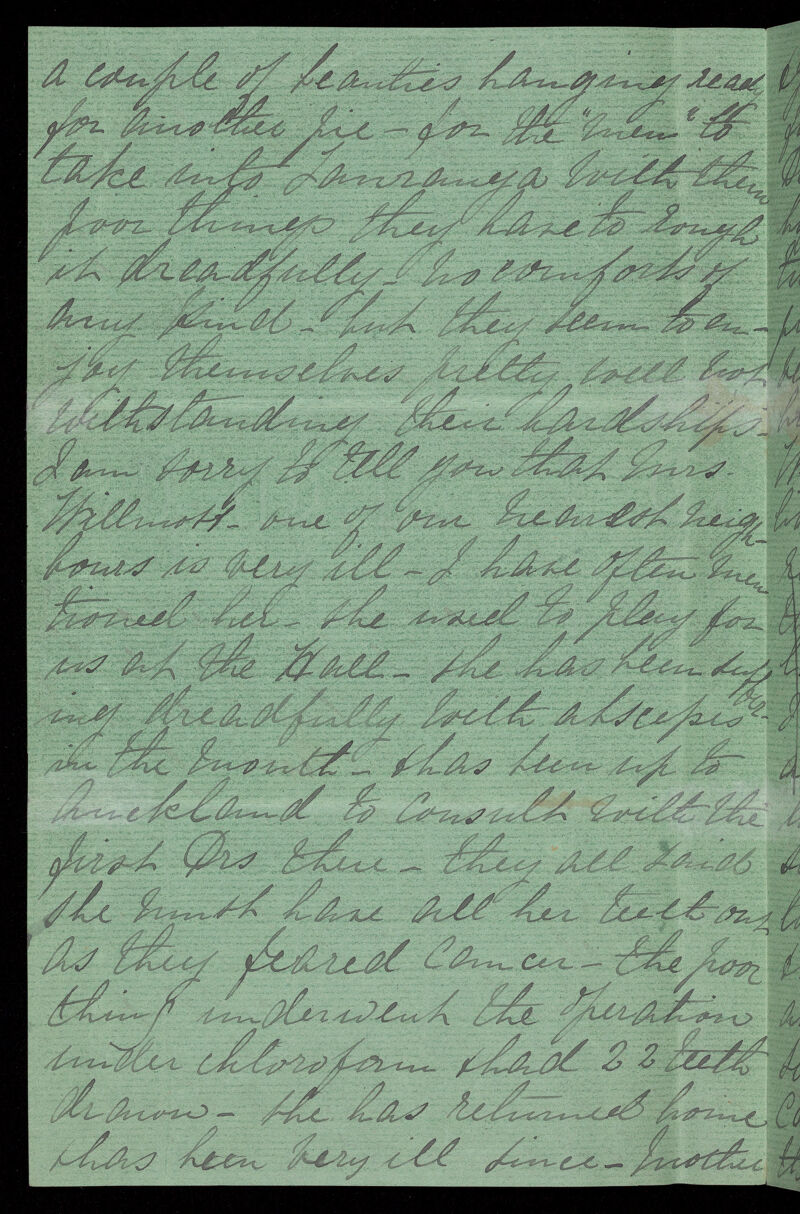 a couple of beauties hanging ready
for another pie - for the "men" to
take into Tauranga with them
poor things they have to rough
it dreadfully - no comforts of
any kind - but they seem to en-
joy themselves pretty well not
withstanding their hardships -
I am sorry to tell you that Mrs.
Willmott - one of our nearest neigh-
bours is very ill - I have often men
tioned her - she used to play for
us at the Hall - she has been suffer-
ing dreadfully with abscesses
in the mouth - & has been up to
Auckland to consult with the
first Drs there - they all said
she must have all her teeth out
as they feared Cancer - the poor
thing underwent the operation
under chloroform & had 22 teeth
drawn - she has returned home
& has been very ill since - Mother